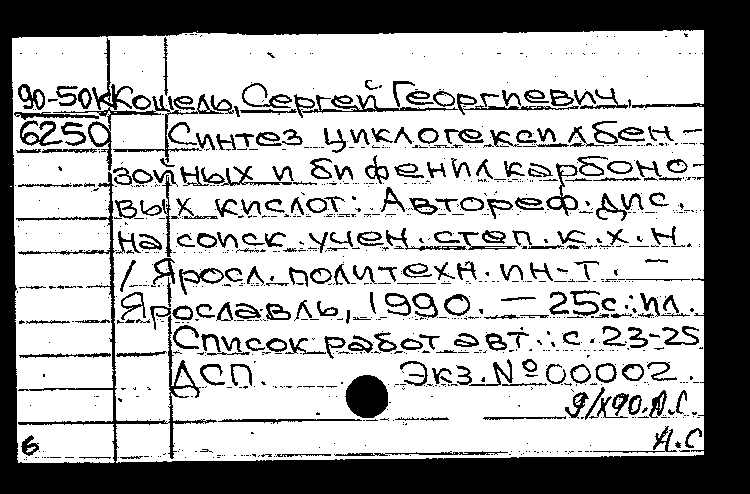 90-50к Кошель, Сергей Георгиевич.
6250 Синтез циклогексилбен-
зойных и бифенилкарбоно-
вых кислот: Автореф. дис.
на соиск. учен. степ. к. х. н.
/ Яросл. политехн. ин-т. —
Ярославль, 1990. — 25с.: ил.
Список работ авт.: с. 23-25
ДСП. Экз. № 00002.
9/X90. А.С.
А.С
б